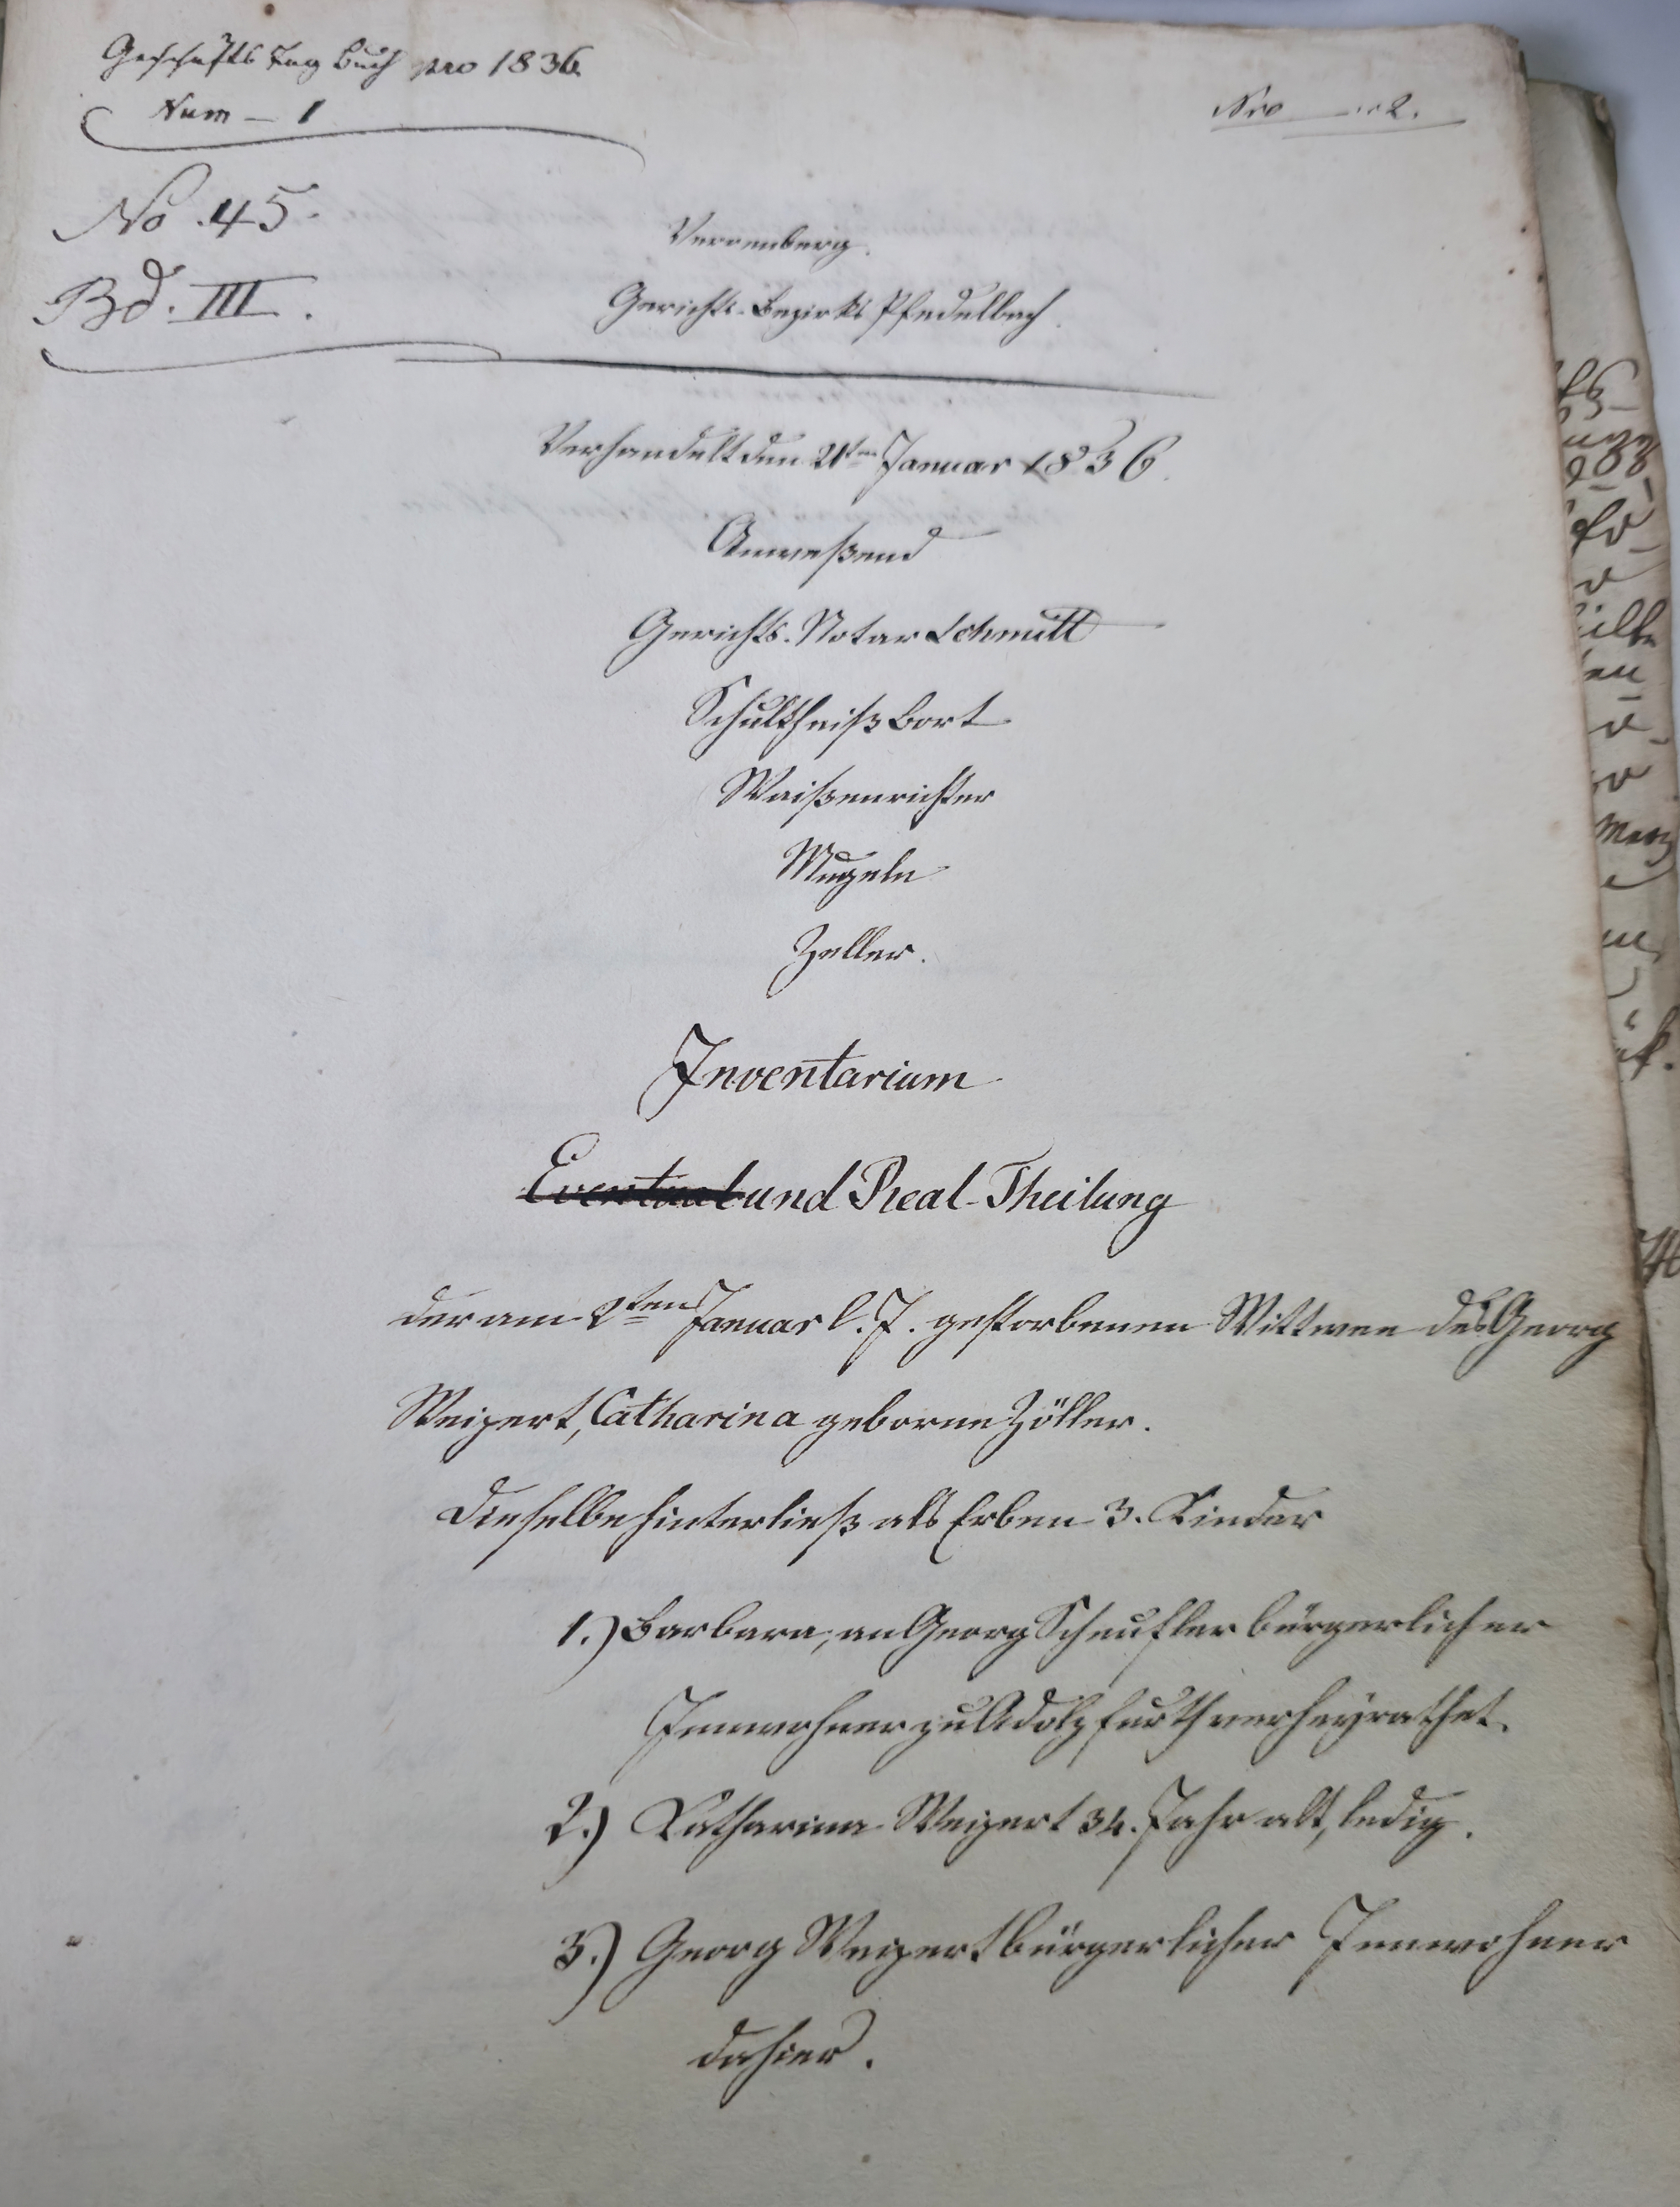 Geschäfts Tag Buch pro 1836.
Num – 1
Nro
No. 45.
Bd. III.
Verrenberg.
Gerichts-Bezirks Pfedelbach.
Verhandelt den 21ten Januar 1836.
Anweßend
Gerichts-Notar Schmitt
Schultheiß Bort
Waißenrichter
Mugele
Zeller.
Inventarium
Eventual und Real-Theilung
der am 2ten Januar l. J. gestorbenen Wittwe des Georg
Weipert, Catharina geborne Zöller.
Dieselbe hinterließ als Erben 3. Kinder
1.) Barbara, an Georg Scheufler bürgerlicher
Innwohner zu Adolzfurth verheyrathet.
2.) Katharina Weipert 34. Jahr alt, ledig.
3.) Georg Weipert bürgerlicher Innwohner
dahier.